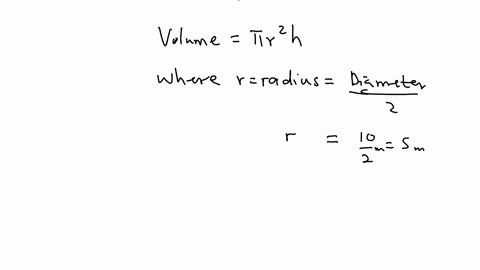 Volume = πr²h
where r = radius = Diameter/2
r = 10/2 m = 5m